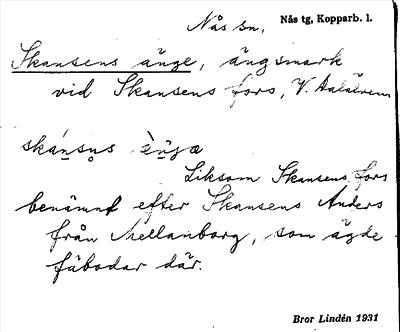 Nås sn. Nås tg, Kopparb. l.
Skansens änge, ängsmark
vid Skansens fors, V. Dalälven
skánsns ä̀ŋja
Liksom Skansens fors
benämnt efter Skansens Anders
från Mellanborg, som ägde
fäbodar där.
Bror Lindén 1931